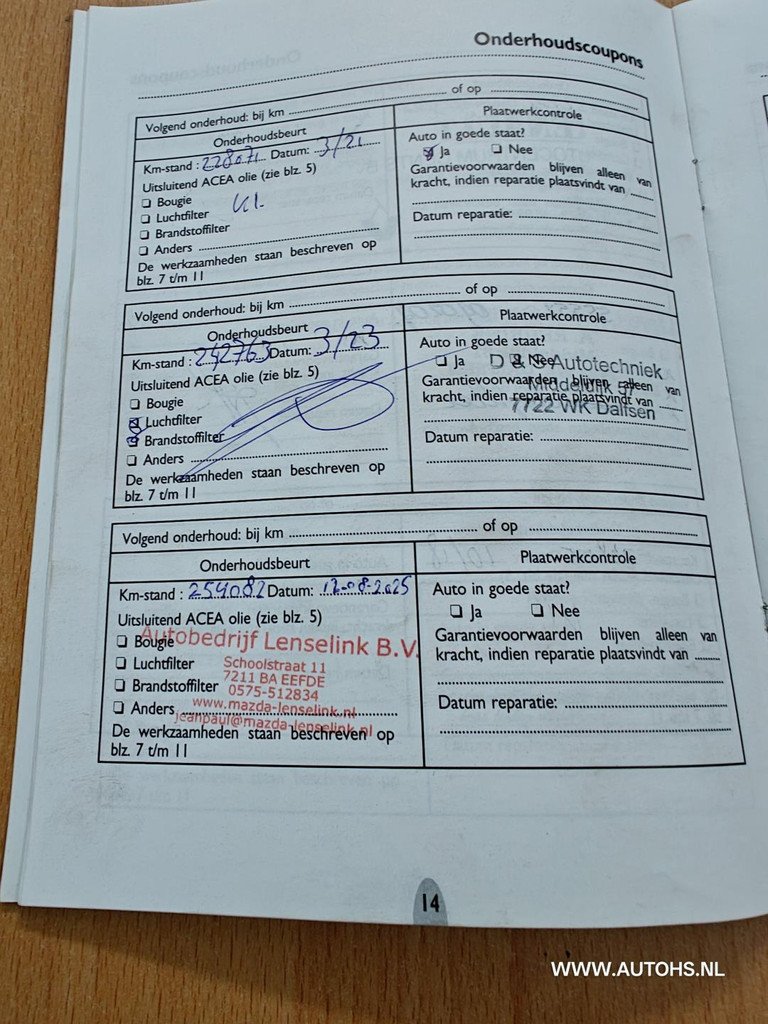 Onderhoudscoupons
Volgend onderhoud: bij km ........ of op ........
Onderhoudsbeurt
Plaatwerkcontrole
Km-stand : 228071 Datum: 3/21
Auto in goede staat?
Ja Nee
Uitsluitend ACEA olie (zie blz. 5)
Garantievoorwaarden blijven alleen van
kracht, indien reparatie plaatsvindt van ........
Bougie
Luchtfilter
Datum reparatie: ........
Brandstoffilter
Anders ........
De werkzaamheden staan beschreven op
blz. 7 t/m 11
Volgend onderhoud: bij km ........ of op ........
Onderhoudsbeurt
Plaatwerkcontrole
Km-stand : 242763 Datum: 3/23
Auto in goede staat?
Ja Nee
D & S Autotechniek
Middeldijk 57
7722 WK Dalfsen
Uitsluitend ACEA olie (zie blz. 5)
Garantievoorwaarden blijven alleen van
kracht, indien reparatie plaatsvindt van ........
Bougie
Luchtfilter
Brandstoffilter
Datum reparatie: ........
Anders ........
De werkzaamheden staan beschreven op
blz. 7 t/m 11
Volgend onderhoud: bij km ........ of op ........
Onderhoudsbeurt
Plaatwerkcontrole
Km-stand : 254082 Datum: 12-08-2025
Auto in goede staat?
Ja Nee
Uitsluitend ACEA olie (zie blz. 5)
Garantievoorwaarden blijven alleen van
kracht, indien reparatie plaatsvindt van ........
Bougie
Autobedrijf Lenselink B.V.
Luchtfilter
Schoolstraat 11
7211 BA EEFDE
Brandstoffilter
0575-512834
Datum reparatie: ........
www.mazda-lenselink.nl
Anders ........
jeanpaul@mazda-lenselink.nl
De werkzaamheden staan beschreven op
blz. 7 t/m 11
14
WWW.AUTOHS.NL